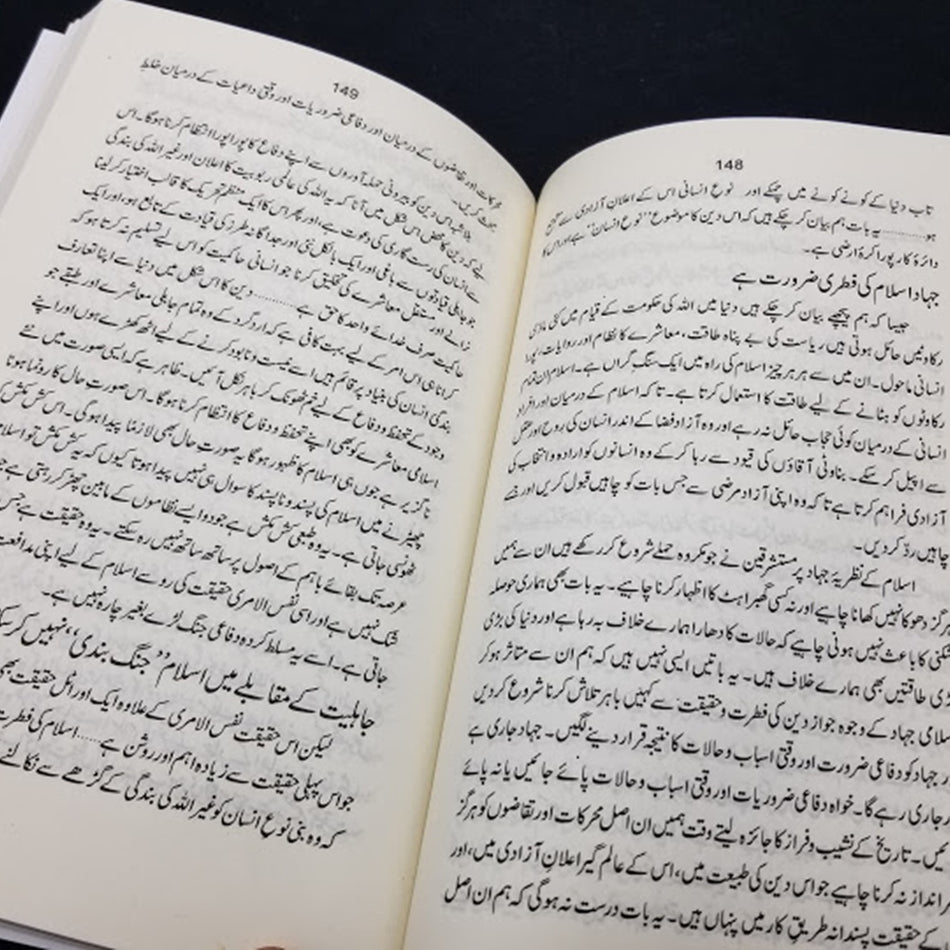 148
تاب دنیا کے کونے کونے میں چمکے اور نوعِ انسانی اس کے اعلانِ آزادی سے
ہو............ یہ بات ہم بیان کر چکے ہیں کہ اس دین کا موضوع ’’نوعِ انسان‘‘ ہے اور اس کا
دائرۂ کار پورا کرۂ ارضی ہے۔
جہاد اسلام کی فطری ضرورت ہے
جیسا کہ ہم پیچھے بیان کر چکے ہیں دنیا میں اللہ کی حکومت کے قیام میں کئی مادی
رکاوٹیں حائل ہوتی ہیں ریاست کی بے پناہ طاقت، معاشرے کا نظام اور روایات، پورا
انسانی ماحول۔ ان میں سے ہر ہر چیز اسلام کی راہ میں ایک سنگِ گراں ہے۔ اسلام ان تمام
رکاوٹوں کو ہٹانے کے لیے طاقت کا استعمال کرتا ہے۔ تاکہ اسلام کے درمیان اور افراد
انسانی کے درمیان کوئی حجاب حائل نہ رہے اور وہ آزاد فضا کے اندر انسان کی روح اور عقل
سے اپیل کر سکے۔ بناوٹی آقاؤں کی قیود سے رہا کر کے وہ انسانوں کو ارادہ و انتخاب کی
آزادی فراہم کرتا ہے تاکہ وہ اپنی آزاد مرضی سے جس بات کو چاہیں قبول کریں اور جسے
چاہیں ردّ کر دیں۔
اسلام کے نظریۂ جہاد پر مستشرقین نے جو مکروہ حملے شروع کر رکھے ہیں ان سے ہمیں
ہرگز دھوکا نہیں کھانا چاہیے اور نہ کسی گھبراہٹ کا اظہار کرنا چاہیے۔ یہ بات بھی ہماری حوصلہ
شکنی کا باعث نہیں ہونی چاہیے کہ حالات کا دھارا ہمارے خلاف بہہ رہا ہے اور دنیا کی بڑی
بڑی طاقتیں بھی ہمارے خلاف ہیں۔ یہ باتیں ایسی نہیں ہیں کہ ہم ان سے متاثر ہو کر
اسلامی جہاد کے وجوہ جواز دین کی فطرت و حقیقت سے کہیں باہر تلاش کرنا شروع کر دیں
جہاد کو دفاعی ضرورت اور وقتی اسباب و حالات کا نتیجہ قرار دینے لگیں۔ جہاد جاری ہے
جاری رہے گا۔ خواہ دفاعی ضروریات اور وقتی اسباب و حالات پائے جائیں یا نہ پائے
تاریخ کے نشیب و فراز کا جائزہ لیتے وقت ہمیں ان اصل محرکات اور تقاضوں کو ہرگز
انداز نہ کرنا چاہیے جو اس دین کی طبیعت میں، اس کے عالم گیر اعلانِ آزادی میں، اور
کے حقیقت پسندانہ طریقِ کار میں پنہاں ہیں۔ یہ بات درست نہ ہوگی کہ ہم ان اصل
149
محرکات اور تقاضوں کے درمیان اور دفاعی ضروریات اور وقتی داعیات کے درمیان خلط
مبحث کریں۔
بلاشبہ اس دین کو بیرونی حملہ آوروں سے اپنے دفاع کا پورا پورا انتظام کرنا ہوگا۔ اس
لیے کہ دین کا محض اس شکل میں آنا کہ یہ اللہ کی عالمی ربوبیت کا اعلان اور غیر اللہ کی بندگی
سے انسان کی رست گاری کی دعوت ہے، اور پھر اس کا ایک منظم تحریک کا قالب اختیار کر لینا
جو جاہلی قیادتوں سے باغی اور ایک بالکل نئی اور جداگانہ طرز کی قیادت کے تابع ہو، اور ایک
نرالے اور مستقل معاشرے کی تخلیق کرنا جو انسانی حاکمیت کو اس لیے تسلیم نہ کرتا ہو کہ
حاکمیت صرف خدائے واحد کا حق ہے............ دین کا اس شکل میں دنیا سے اپنا تعارف
کرانا ہی اس امر کے لیے بہت کافی ہے کہ اردگرد کے وہ تمام جاہلی معاشرے اور طبقے جو
بندگیِ انسان کی بنیاد پر قائم ہیں اسے نیست و نابود کرنے کے لیے اٹھ کھڑے ہوں اور اپنے
وجود کے تحفظ و دفاع کے لیے خم ٹھونک کر باہر نکل آئیں۔ ظاہر ہے کہ ایسی صورت میں نئے
اسلامی معاشرے کو بھی اپنے تحفظ و دفاع کا انتظام کرنا ہوگا۔ اس صورتِ حال کا رونما ہونا
ناگزیر ہے جوں ہی اسلام کا ظہور ہوگا یہ صورتِ حال بھی لازماً پیدا ہوگی۔ اس کش مکش کو
چھیڑنے میں اسلام کی پسند و ناپسند کا سوال ہی نہیں پیدا ہوتا کیوں کہ یہ کش مکش تو اسلام
ٹھونسی جاتی ہے۔ یہ وہ طبعی کش مکش ہے جو دو ایسے نظاموں کے مابین چھڑ کر رہتی ہے
عرصہ تک بقائے باہم کے اصول پر ساتھ ساتھ نہیں رہ سکتے۔ یہ وہ حقیقت ہے جس
شک نہیں ہے اور اسی نفس الامری حقیقت کی رو سے اسلام کے لیے اپنی مدافعت
جاتی ہے۔ اسے یہ مسلط کردہ دفاعی جنگ لڑے بغیر چارہ نہیں ہے۔
جاہلیت کے مقابلے میں اسلام ’’جنگ بندی‘‘ نہیں کر سکتا
لیکن اس حقیقت نفس الامری کے علاوہ ایک اور اٹل حقیقت بھی
جو اس پہلی حقیقت سے زیادہ اہم اور روشن ہے..... اسلام کی فطرت
کہ وہ بنی نوعِ انسان کو غیر اللہ کی بندگی کے گڑھے سے نکالنے